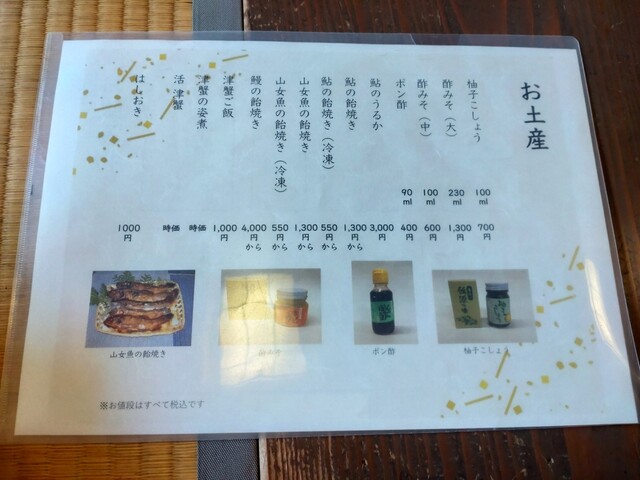 お土産
柚子こしょう 100ml 700円
酢みそ（大） 230ml 1,300円
酢みそ（中） 100ml 600円
ポン酢 90ml 400円
鮎のうるか 3,000円
鮎の飴焼き 1,300円から
鮎の飴焼き（冷凍） 550円から
山女魚の飴焼き 1,300円から
山女魚の飴焼き（冷凍） 550円から
鰻の飴焼き 4,000円から
津蟹ご飯 1,000円
津蟹の姿煮 時価
活 津蟹 時価
はしおき 1000円
柚子こしょう
ポン酢
山女魚の飴焼き
※お値段はすべて税込です